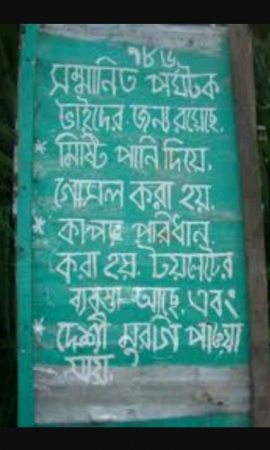 ৭৮৬
সম্মানিত পর্যটক
ভাইদের জন্য রয়েছে.
* মিষ্টি পানি দিয়ে,
গোসল করা হয়.
* কাপড় পরিধান.
করা হয়. টয়লেটের
ব্যবস্তা আছে. এবং
* দেশী মুরগী পাওয়া
যায়.